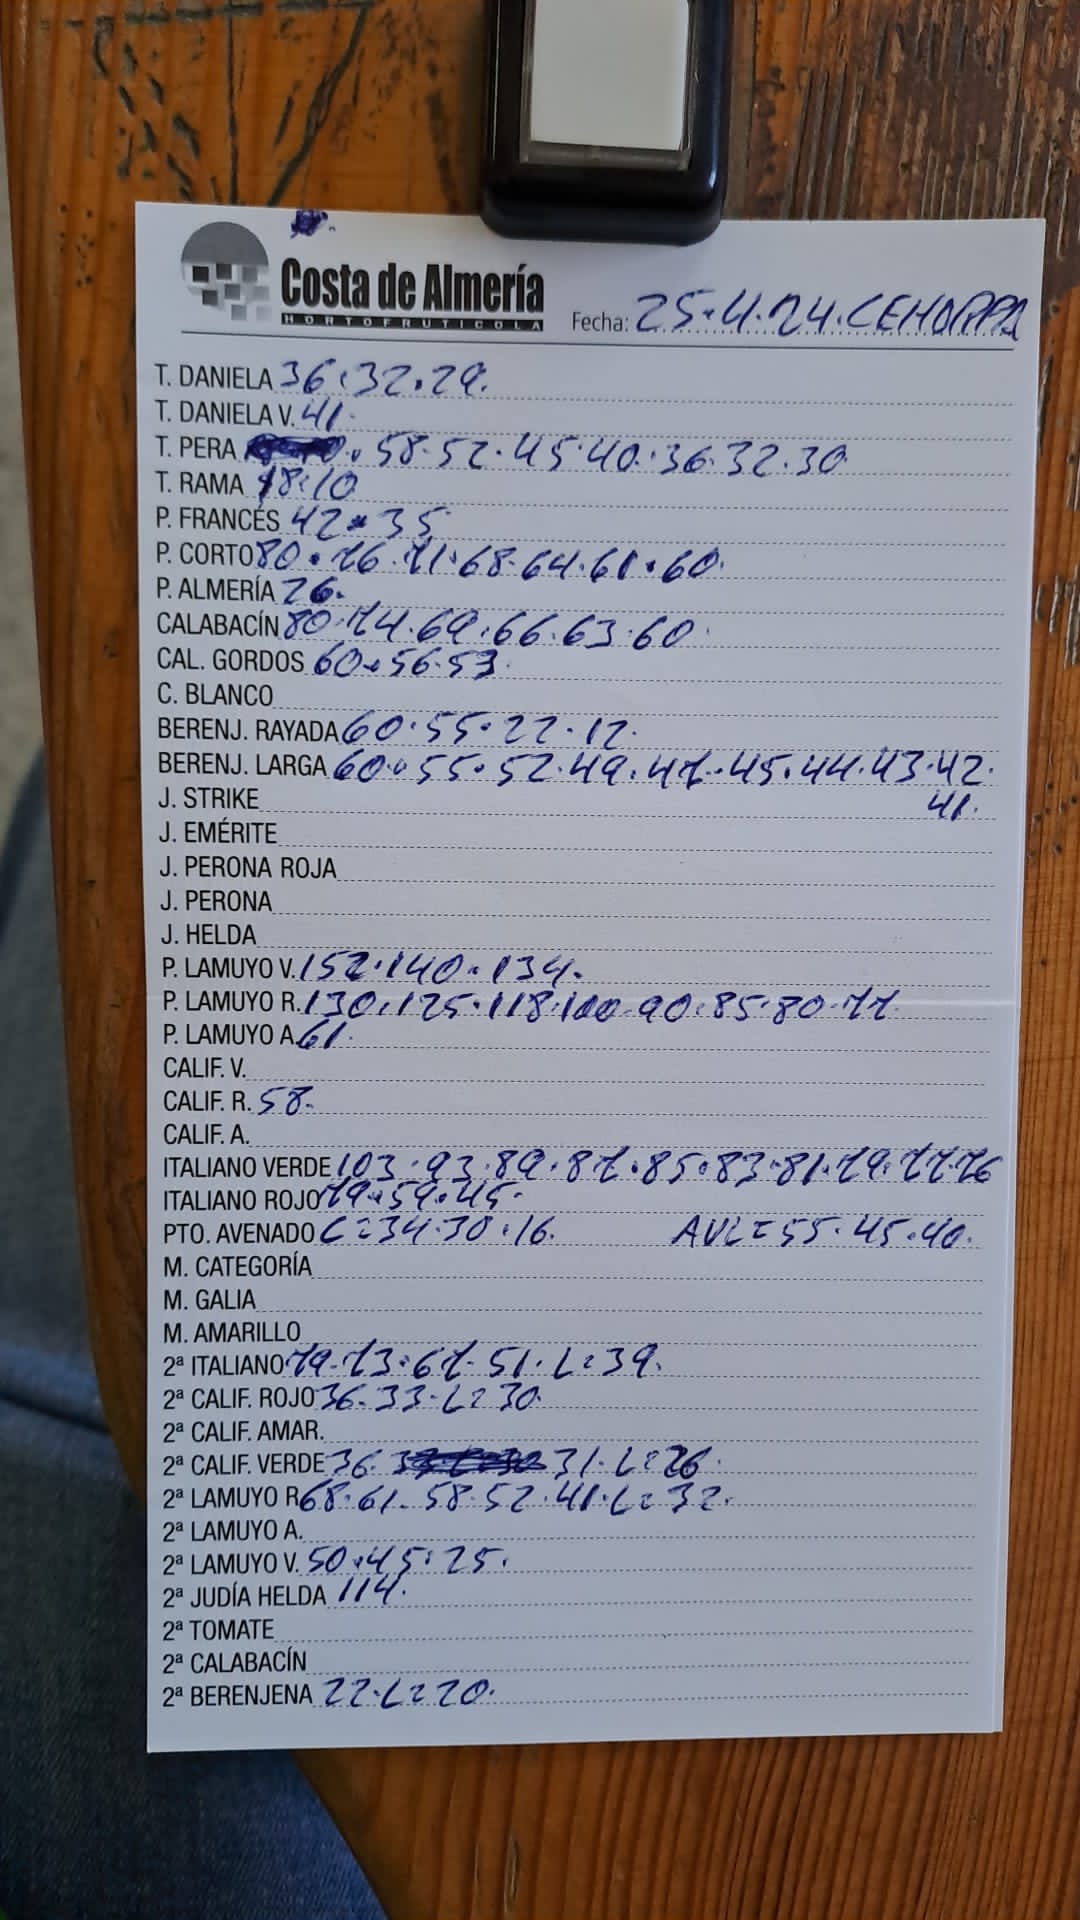 Costa de Almería
HORTOFRUTICOLA
Fecha: 25.4.24. CEHORPA
T. DANIELA 36.32.29.
T. DANIELA V. 41.
T. PERA 58.52.45.40.36.32.30
T. RAMA 18.10
P. FRANCÉS 42.35
P. CORTO 80.76.71.68.64.61.60.
P. ALMERÍA 26.
CALABACÍN 80.74.69.66.63.60.
CAL. GORDOS 60.56.53.
C. BLANCO
BERENJ. RAYADA 60.55.22.12.
BERENJ. LARGA 60.55.52.49.47.45.44.43.42.
J. STRIKE 41.
J. EMÉRITE
J. PERONA ROJA
J. PERONA
J. HELDA
P. LAMUYO V. 152.140.134.
P. LAMUYO R. 130.125.118.100.90.85.80.77.
P. LAMUYO A. 61.
CALIF. V.
CALIF. R. 58.
CALIF. A.
ITALIANO VERDE 103.93.89.87.85.83.81.79.77.76
ITALIANO ROJO 79.59.45.
PTO. AVENADO C=34.30.16. AVL=55.45.40.
M. CATEGORÍA
M. GALIA
M. AMARILLO
2ª ITALIANO 79.73.67.51.L=39.
2ª CALIF. ROJO 36.33.L=30.
2ª CALIF. AMAR.
2ª CALIF. VERDE 36. 31.L=26.
2ª LAMUYO R. 68.61.58.52.41.L=32.
2ª LAMUYO A.
2ª LAMUYO V. 50.45.25.
2ª JUDÍA HELDA 114.
2ª TOMATE
2ª CALABACÍN
2ª BERENJENA 22.L=20.